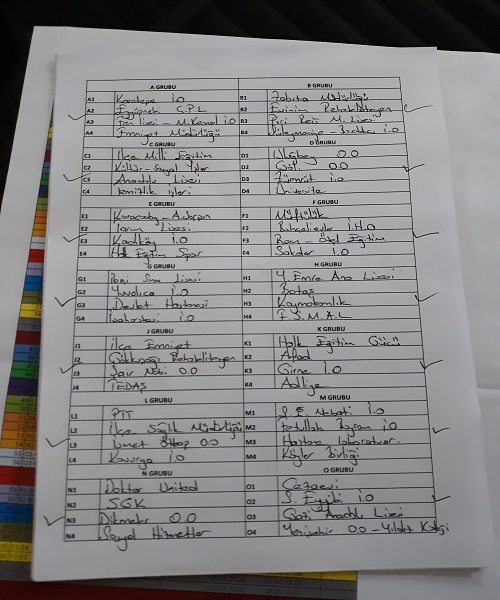 A GRUBU
A1 Karatepe İ.O
A2 Eyüpnebi Ç.P.L
A3 Fen Lisesi - M.Kemal İ.O
A4 Emniyet Müdürlüğü
B GRUBU
B1 Zabıta Müdürlüğü
B2 Evinim Rehabilitasyon
B3 Piri Reis M.Lisesi
B4 Süleymaniye - İ.O
C GRUBU
C1 İlçe Milli Eğitim
C2 Kültür-Sosyal İşler
C3 Anadolu Lisesi
C4 Temizlik İşleri
D GRUBU
D1 Uluğbey O.O
D2 Göl O.O
D3 Zümrüt İ.O
D4 Üniversite
E GRUBU
E1 Karacadağ -
E2 Tarım Lisesi
E3 Kadıköy İ.O
E4 Halk Eğitim Spor
F GRUBU
F1 Müftülük
F2 Bahçelievler İ.H.O
F3 Ram - Özel Eğitim
F4 İ.O
G GRUBU
G1 İbni Sina Lisesi
G2 Yuvalıca İ.O
G3 Devlet Hastanesi
G4 İ.O
H GRUBU
H1 Y. Emre Ana Lisesi
H2 Botaş
H3 Kaymakamlık
H4 F.S.M.A.L
J GRUBU
J1 İlçe Emniyet
J2 Gökkuşağı Rehabilitasyon
J3 Şair Nebi O.O
J4 TEDAŞ
K GRUBU
K1 Halk Eğitim Gücü
K2 Afad
K3 Girne İ.O
K4 Adliye
L GRUBU
L1 PTT
L2 İlçe Sağlık Müdürlüğü
L3 O.O
L4 Kavurga İ.O
M GRUBU
M1 Ş. E. Nebati İ.O
M2 Fetullah İ.O
M3 Hastane laboratuar.
M4 Köyler Birliği
N GRUBU
N1 Doktor United
N2 SGK
N3 Dikmeler O.O
N4 Sosyal Hizmetler
O GRUBU
O1 Cezaevi
O2 S. Eyyübi İ.O
O3 Gazi Anadolu Lisesi
O4 Yenişehir O.O - Yıldız Koleji